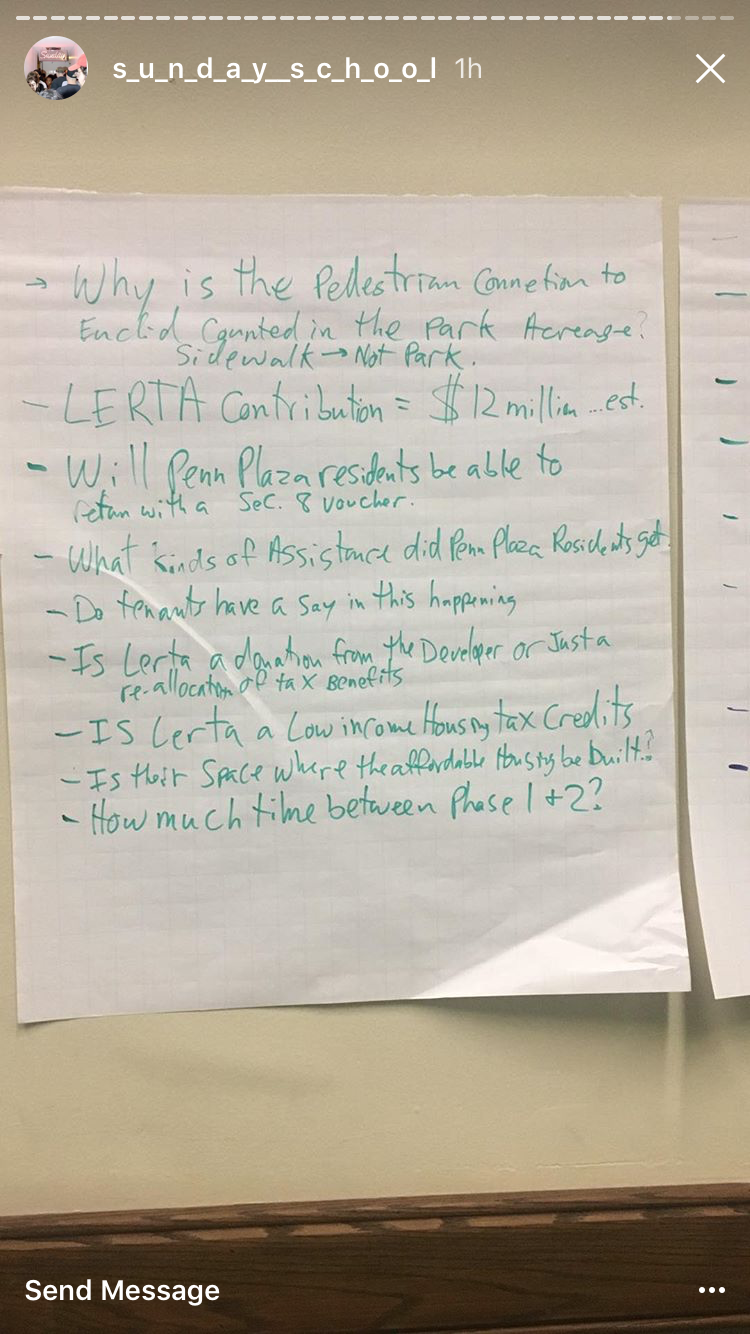 s_u_n_d_a_y__s_c_h_o_o_l 1h
→ Why is the Pedestrian Connetion to
Euclid Counted in the Park Acreage?
Sidewalk → Not Park.
- LERTA Contribution = $12 million ...est.
- Will Penn Plaza residents be able to
retun with a Sec. 8 voucher.
- What kinds of Assistance did Penn Plaza Residents get
- Do tenants have a say in this happening
- Is Lerta a donation from the Developer or Just a
re-allocation of tax Benefits
- IS Lerta a Low income Housng tax Credits
- Is their Space where the affordable Housng be built?
- How much time between Phase 1 + 2?
Send Message